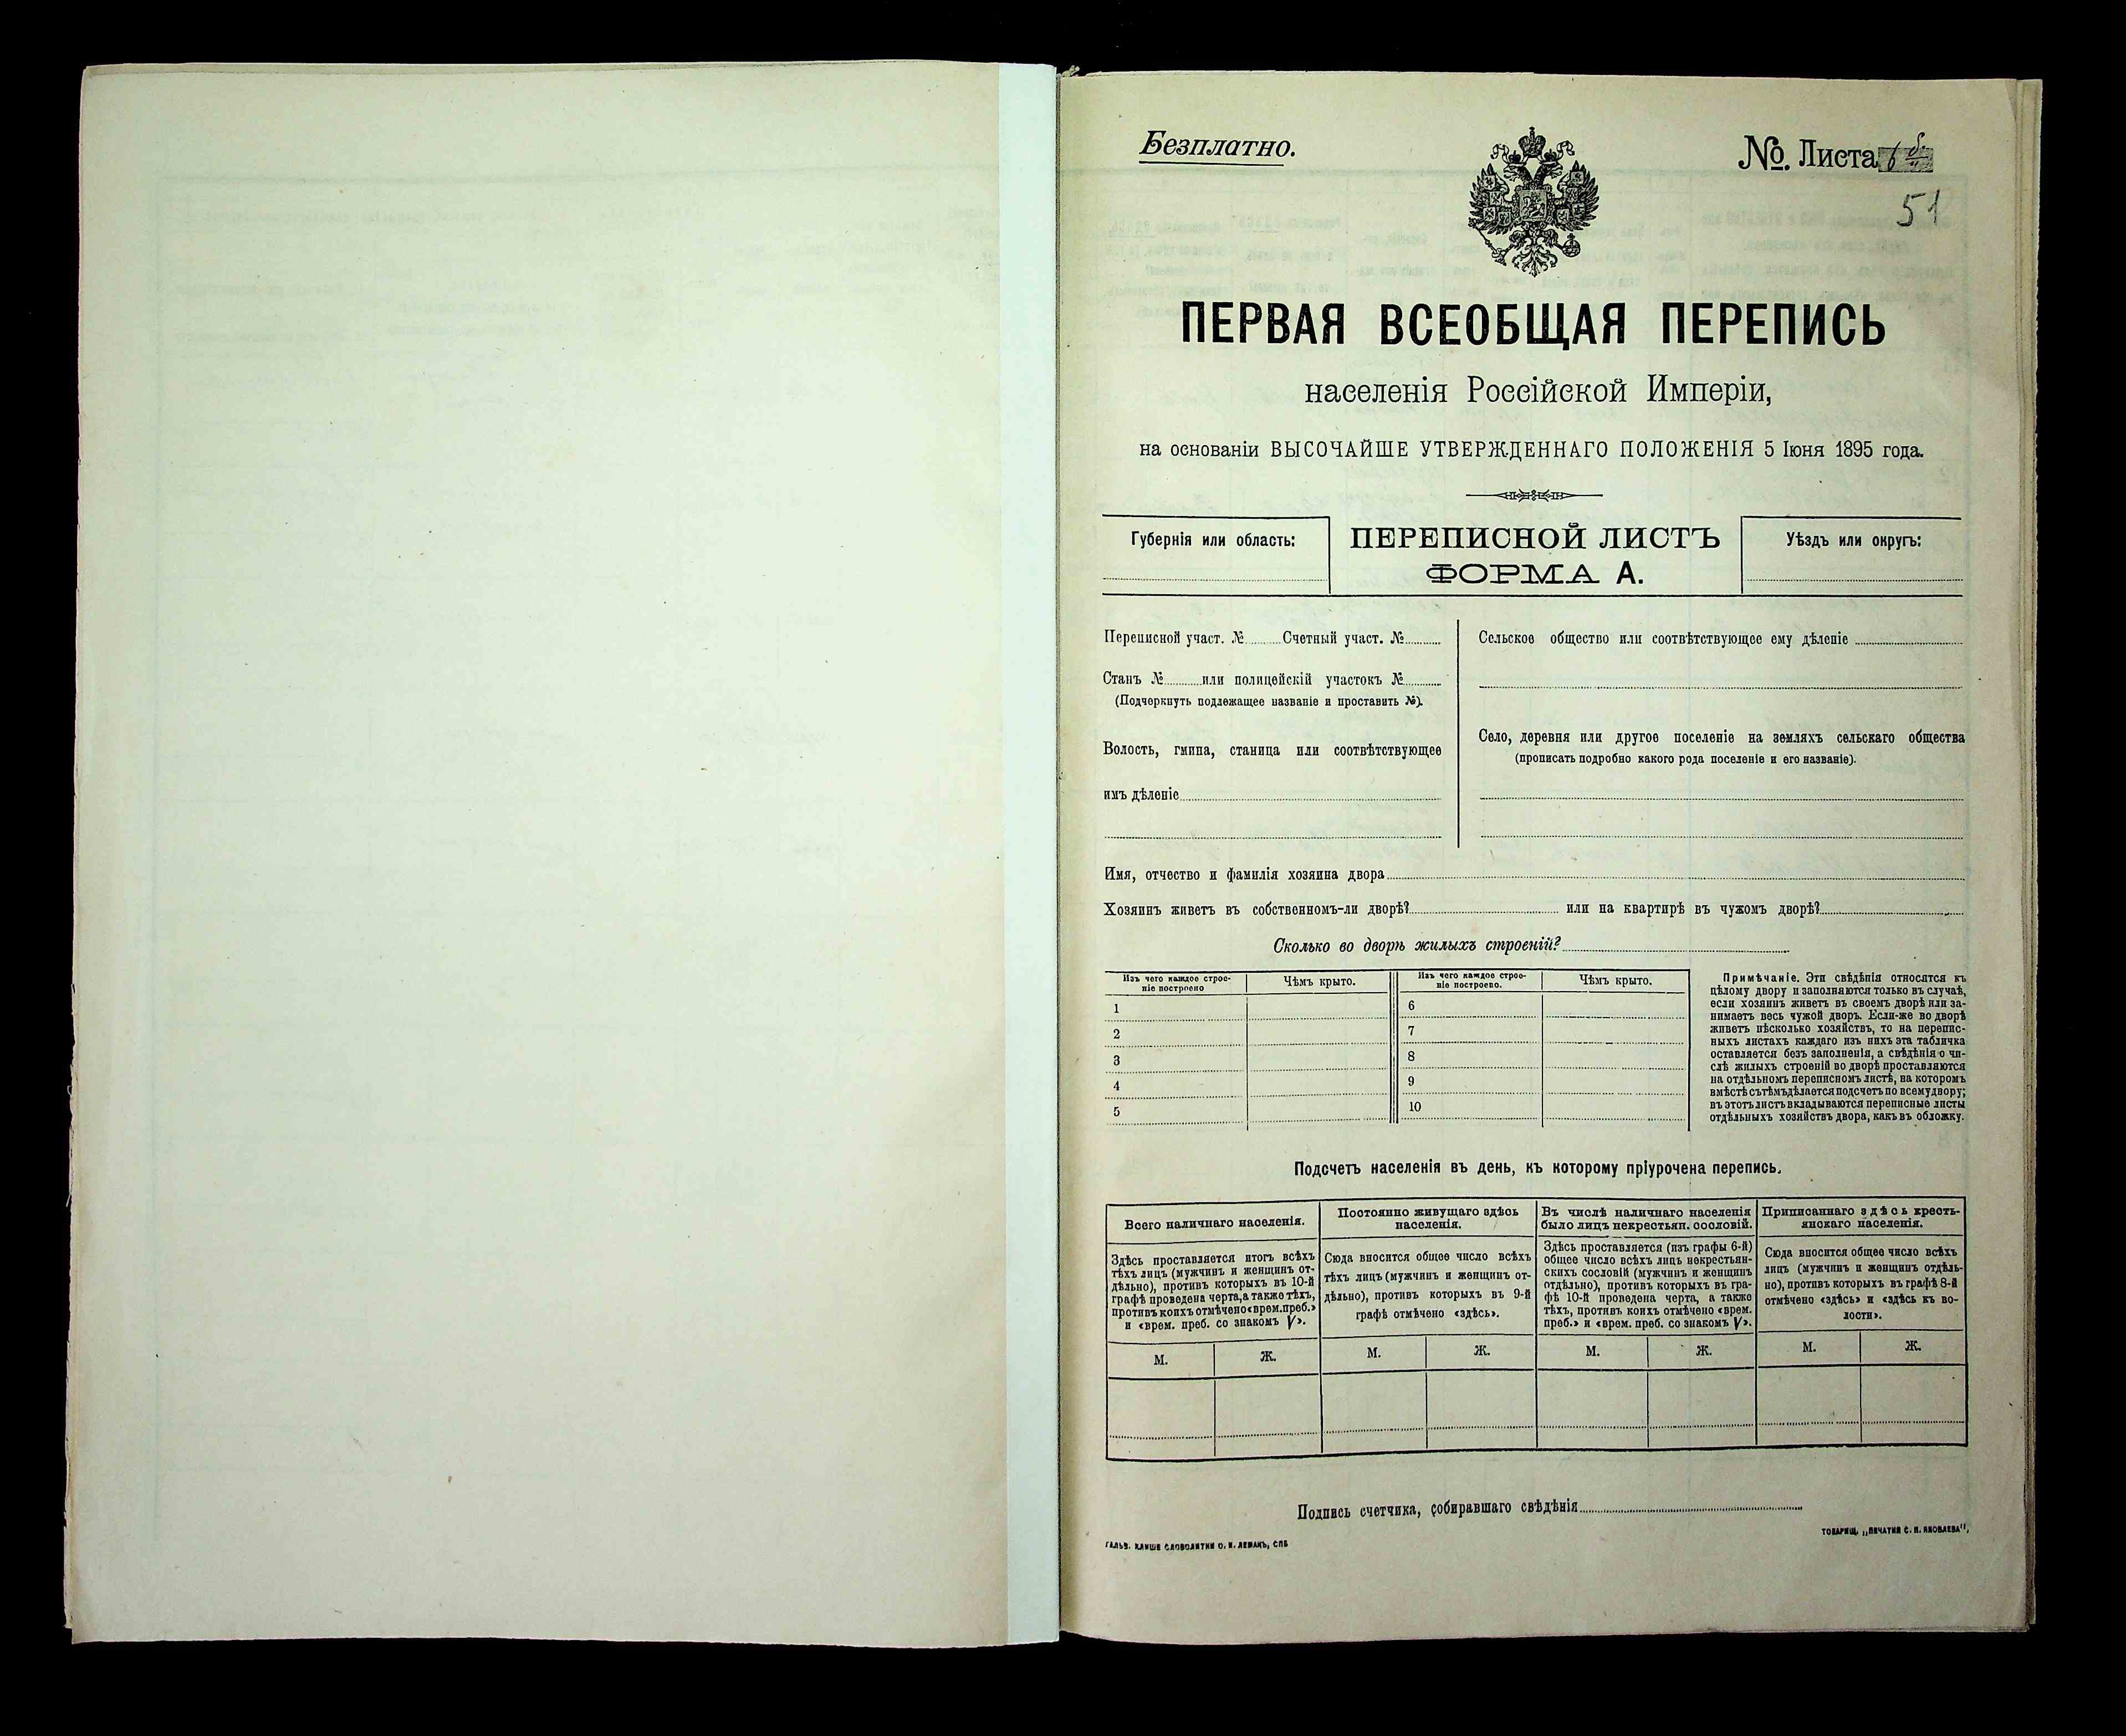 Безплатно.
№. Листа 6
51
ПЕРВАЯ ВСЕОБЩАЯ ПЕРЕПИСЬ
населенія Россійской Имперіи,
на основаніи ВЫСОЧАЙШЕ УТВЕРЖДЕННАГО ПОЛОЖЕНІЯ 5 Іюня 1895 года.
Губернія или область:
ПЕРЕПИСНОЙ ЛИСТЪ
ФОРМА А.
Уѣздъ или округъ:
Переписной участ. № Счетный участ. №
Станъ № или полицейскій участокъ №
(Подчеркнуть подлежащее названіе и проставить №).
Волость, гмина, станица или соотвѣтствующее
имъ дѣленіе
Сельское общество или соотвѣтствующее ему дѣленіе
Село, деревня или другое поселеніе на земляхъ сельскаго общества
(прописать подробно какого рода поселеніе и его названіе).
Имя, отчество и фамилія хозяина двора
Хозяинъ живетъ въ собственномъ-ли дворѣ? или на квартирѣ въ чужомъ дворѣ?
Сколько во дворѣ жилыхъ строеній?
Изъ чего каждое строе-
ніе построено
Чѣмъ крыто.
Изъ чего каждое строе-
ніе построено.
Чѣмъ крыто.
1
2
3
4
5
6
7
8
9
10
Примѣчаніе. Эти свѣдѣнія относятся къ
цѣлому двору и заполняются только въ случаѣ,
если хозяинъ живетъ въ своемъ дворѣ или за-
нимаетъ весь чужой дворъ. Если-же во дворѣ
живетъ нѣсколько хозяйствъ, то на перепис-
ныхъ листахъ каждаго изъ нихъ эта табличка
оставляется безъ заполненія, а свѣдѣнія о чи-
слѣ жилыхъ строеній во дворѣ проставляются
на отдѣльномъ переписномъ листѣ, на которомъ
вмѣстѣ съ тѣмъ дѣлается подсчетъ по всему двору;
въ этотъ листъ вкладываются переписные листы
отдѣльныхъ хозяйствъ двора, какъ въ обложку.
Подсчетъ населенія въ день, къ которому пріурочена перепись.
Всего наличнаго населенія.
Здѣсь проставляется итогъ всѣхъ
тѣхъ лицъ (мужчинъ и женщинъ от-
дѣльно), противъ которыхъ въ 10-й
графѣ проведена черта, а также тѣхъ,
противъ коихъ отмѣчено «врем. преб.»
и «врем. преб. со знакомъ V».
М.
Ж.
Постоянно живущаго здѣсь
населенія.
Сюда вносится общее число всѣхъ
тѣхъ лицъ (мужчинъ и женщинъ от-
дѣльно), противъ которыхъ въ 9-й
графѣ отмѣчено «здѣсь».
М.
Ж.
Въ числѣ наличнаго населенія
было лицъ некрестьян. сословій.
Здѣсь проставляется (изъ графы 6-й)
общее число всѣхъ лицъ некрестьян-
скихъ сословій (мужчинъ и женщинъ
отдѣльно), противъ которыхъ въ гра-
фѣ 10-й проведена черта, а также
тѣхъ, противъ коихъ отмѣчено «врем.
преб.» и «врем. преб. со знакомъ V».
М.
Ж.
Приписаннаго здѣсь кресть-
янскаго населенія.
Сюда вносится общее число всѣхъ
лицъ (мужчинъ и женщинъ отдѣль-
но), противъ которыхъ въ графѣ 8-й
отмѣчено «здѣсь» и «здѣсь къ во-
лости».
М.
Ж.
Подпись счетчика, собиравшаго свѣдѣнія
ГАЛЬВ. КЛИШЕ СЛОВОЛИТНИ О. И. ЛЕМАНЪ, СПБ
ТОВАРИЩ. „ПЕЧАТНЯ С. П. ЯКОВЛЕВА",